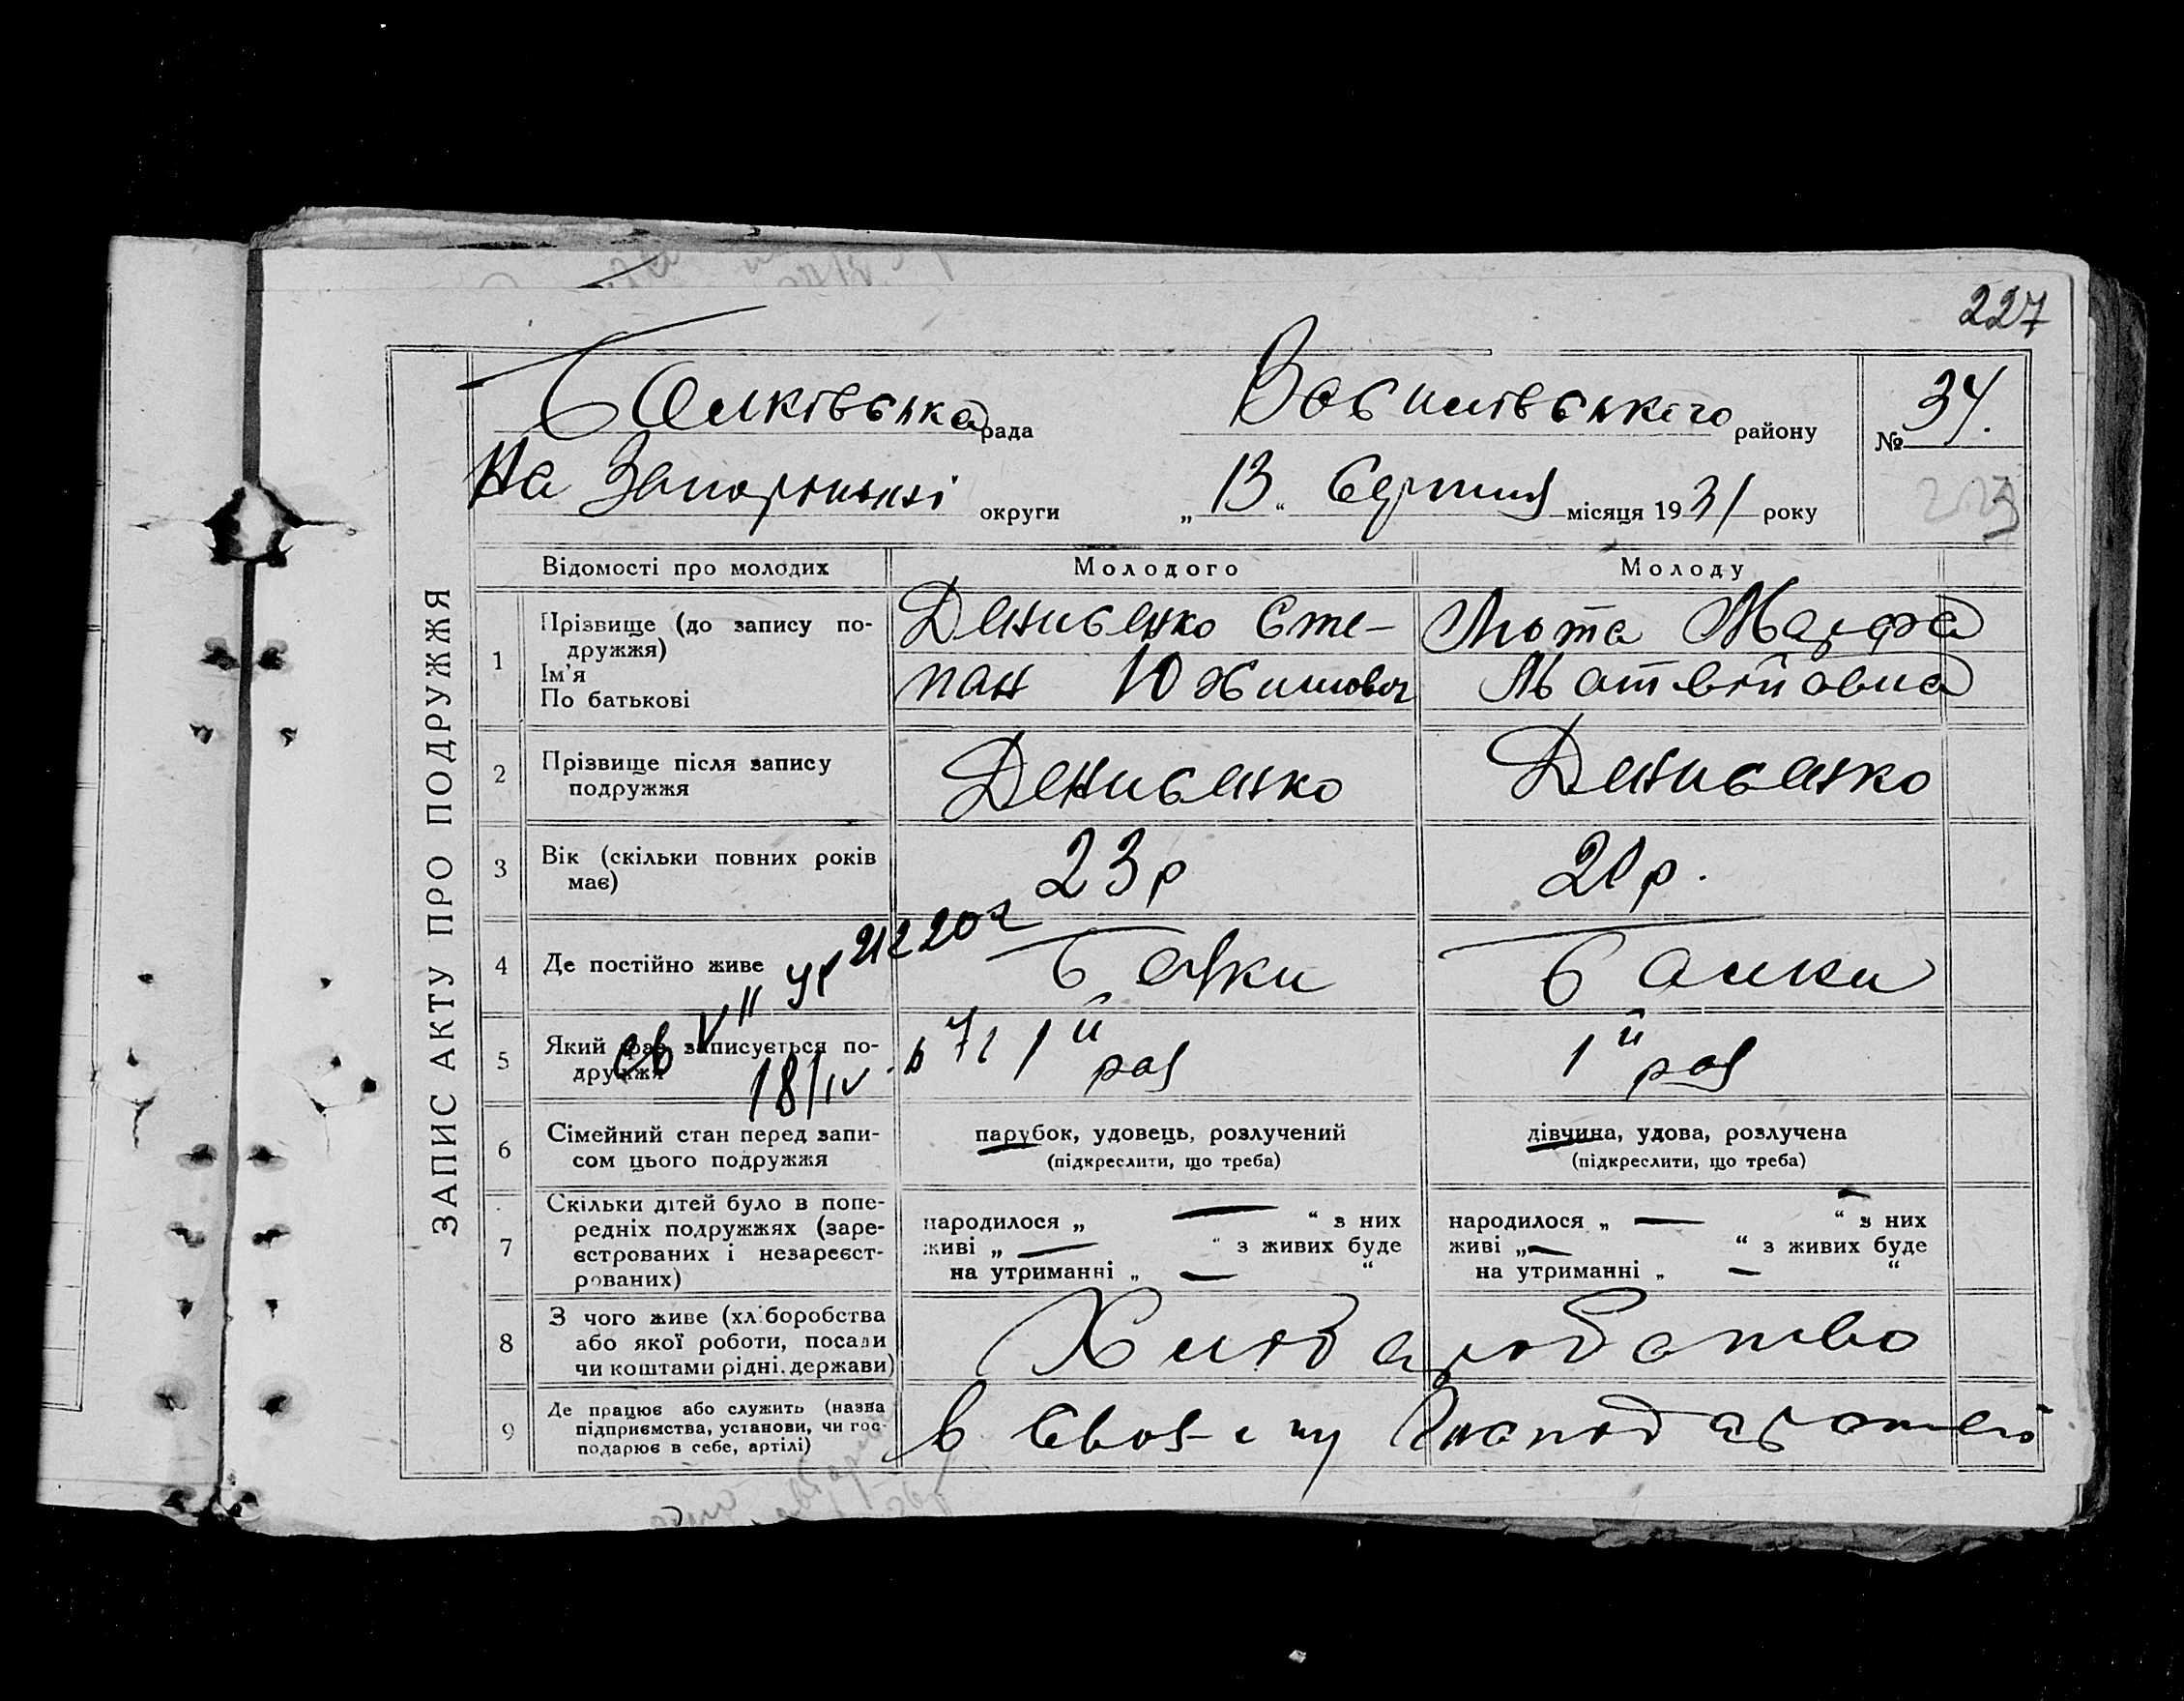 227
ЗАПИС АКТУ ПРО ПОДРУЖЖЯ
Балківська рада Василівського району № 34.
На Запоріжжі округи „13“ Серпня місяця 1931 року
Відомості про молодих Молодого Молоду
1 Прізвище (до запису по-
дружжя)
Ім'я
По батькові
Денисенко Сте-
пан Юхимович
Люта Марфа
Матвійовна
2 Прізвище після запису
подружжя
Денисенко Денисенко
3 Вік (скільки повних років
має)
23 р 20 р.
4 Де постійно живе Балки Балки
5 Який раз записується по-
дружжя
1й раз 1й раз
6 Сімейний стан перед запи-
сом цього подружжя
парубок, удовець, розлучений
(підкреслити, що треба)
дівчина, удова, розлучена
(підкреслити, що треба)
7 Скільки дітей було в попе-
редніх подружжях (заре-
єстрованих і незареєст-
рованих)
народилося „ — “ з них
живі „ — “ з живих буде
на утриманні „ — “
народилося „ — “ з них
живі „ — “ з живих буде
на утриманні „ — “
8 З чого живе (хліборобства
або якої роботи, посади
чи коштами рідні, держави)
Хліборобство
9 Де працює або служить (назва
підприємства, установи, чи гос-
подарює в себе, артілі)
в своєму
18/IV